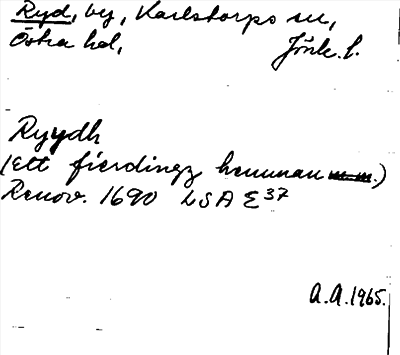 Ryd, by, Karlstorps sn,
Östra hd, Jönk. l.
Ryydh
(Ett fierdingz hemman m m.)
Renov. 1690 LSA E37
A.A. 1965.